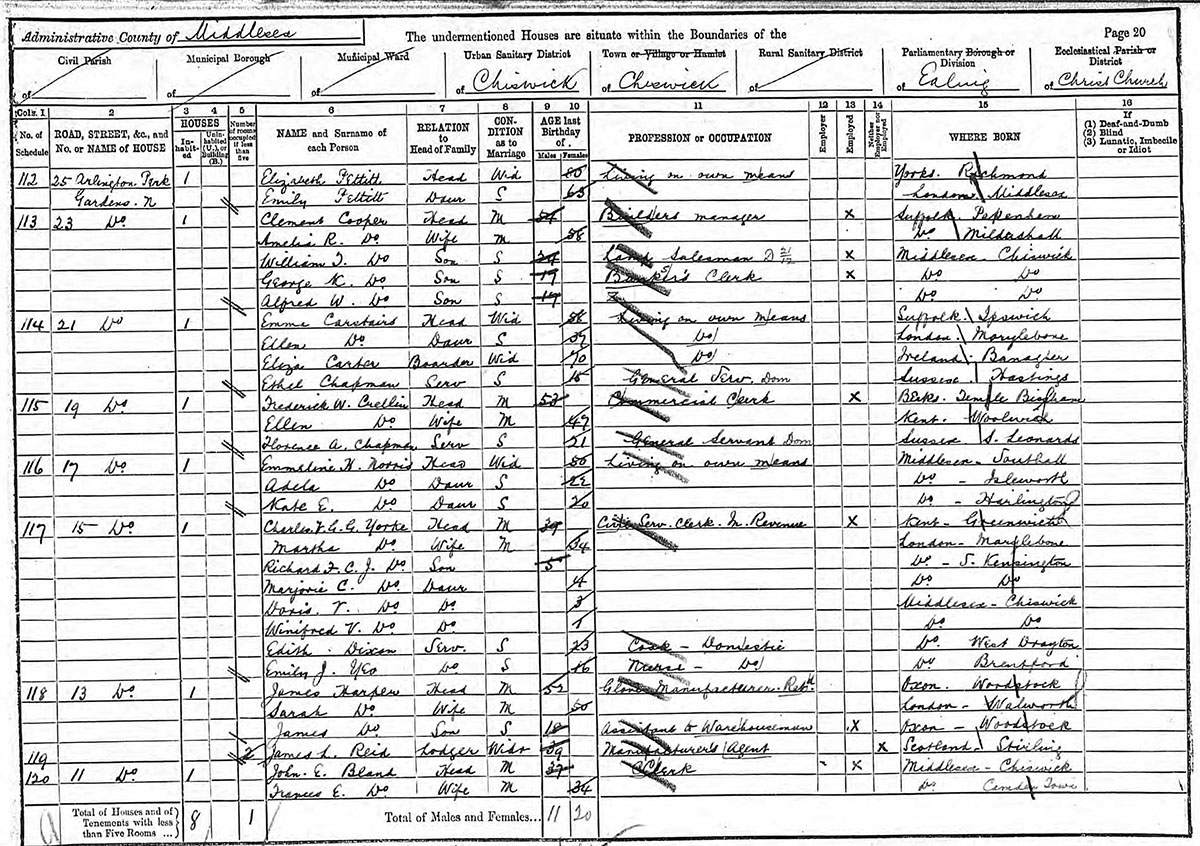 Administrative County of Middlesex The undermentioned Houses are situate within the Boundaries of the Page 20
Civil Parish Municipal Borough Municipal Ward Urban Sanitary District Town or Village or Hamlet Rural Sanitary District Parliamentary Borough or Division Ecclesiastical Parish or District
of of of of Chiswick of Cheswick of of Ealing of Christ Church
Cols. 1 2 3 4 5 6 7 8 9 10 11 12 13 14 15 16
No. of Schedule ROAD, STREET, &c., and No. or NAME of HOUSE HOUSES Inhabited Uninhabited (U.), or Building (B.) Number of rooms occupied if less than five NAME and Surname of each Person RELATION to Head of Family CONDITION as to Marriage AGE last Birthday of Males Females PROFESSION or OCCUPATION Employer Employed Neither Employer nor Employed WHERE BORN If (1) Deaf-and-Dumb (2) Blind (3) Lunatic, Imbecile or Idiot
112 25 Arlington Park 1 Elizabeth Pettitt Head Wid 80 Living on own means Yorks. Richmond
Gardens. N Emily Pettitt Daur S 63 London Middlesex
113 23 Do 1 Clement Cooper Head M 54 Builders manager x Suffolk. Pakenham
Amelia R. Do Wife M 58 Do Mildenhall
William T. Do Son S Lamp Salesman x Middlesex - Chiswick
George K. Do Son S 19 Banker's Clerk x Do Do
Alfred W. Do Son S 17 Do Do
114 21 Do 1 Emma Carstairs Head Wid Living on own means Suffolk Ipswich
Ellen Do Daur S 37 Do London. Marylebone
Eliza Carter Boarder Wid 70 Do Ireland. Banagher
Ethel Chapman Serv S 15 General Serv. Dom Sussex. Hastings
115 19 Do 1 Frederick W. Crellin Head M 53 Commercial Clerk x Berks. Temple
Ellen Do Wife M 47 Kent - Woolwich
Florence A. Chapman Serv S 21 General Servant Dom Sussex S. Leonards
116 17 Do 1 Emmeline H. Norris Head Wid 50 Living on own means Middlesex - Southall
Adela Do Daur S 22 Do - Isleworth
Kate E. Do Daur S 20 Do - Harlington
117 15 Do 1 Charles F. G. G. Yorke Head M 39 Civil Serv. Clerk In. Revenue x Kent - Greenwich
Martha Do Wife M 34 London - Marylebone
Richard F. C. J. Do Son 5 Do - S. Kensington
Marjorie C. Do Daur 4 Do Do
Doris V. Do Do 3 Middlesex - Chiswick
Winifred V. Do Do 1 Do Do
Edith Dixon Serv. S 23 Cook - Domestic Do West Drayton
Emily J. Yeo Do S 16 Nurse - Do Do Brentford
118 13 Do 1 James Harper Head M 52 Glove Manufacturer. Retd Oxon. Woodstock
Sarah Do Wife M 50 London - Walworth
James Do Son S 18 Assistant to Warehouseman x Oxon - Woodstock
119 2 James L. Reid Lodger Widr 39 Manufacturer's Agent x Scotland - Stirling
120 11 Do 1 John. E. Bland Head M 37 Clerk x Middlesex - Chiswick
Frances E. Do Wife M 34 Do Camden Town
Total of Houses and of Tenements with less than Five Rooms ... 8 1 Total of Males and Females... 11 20